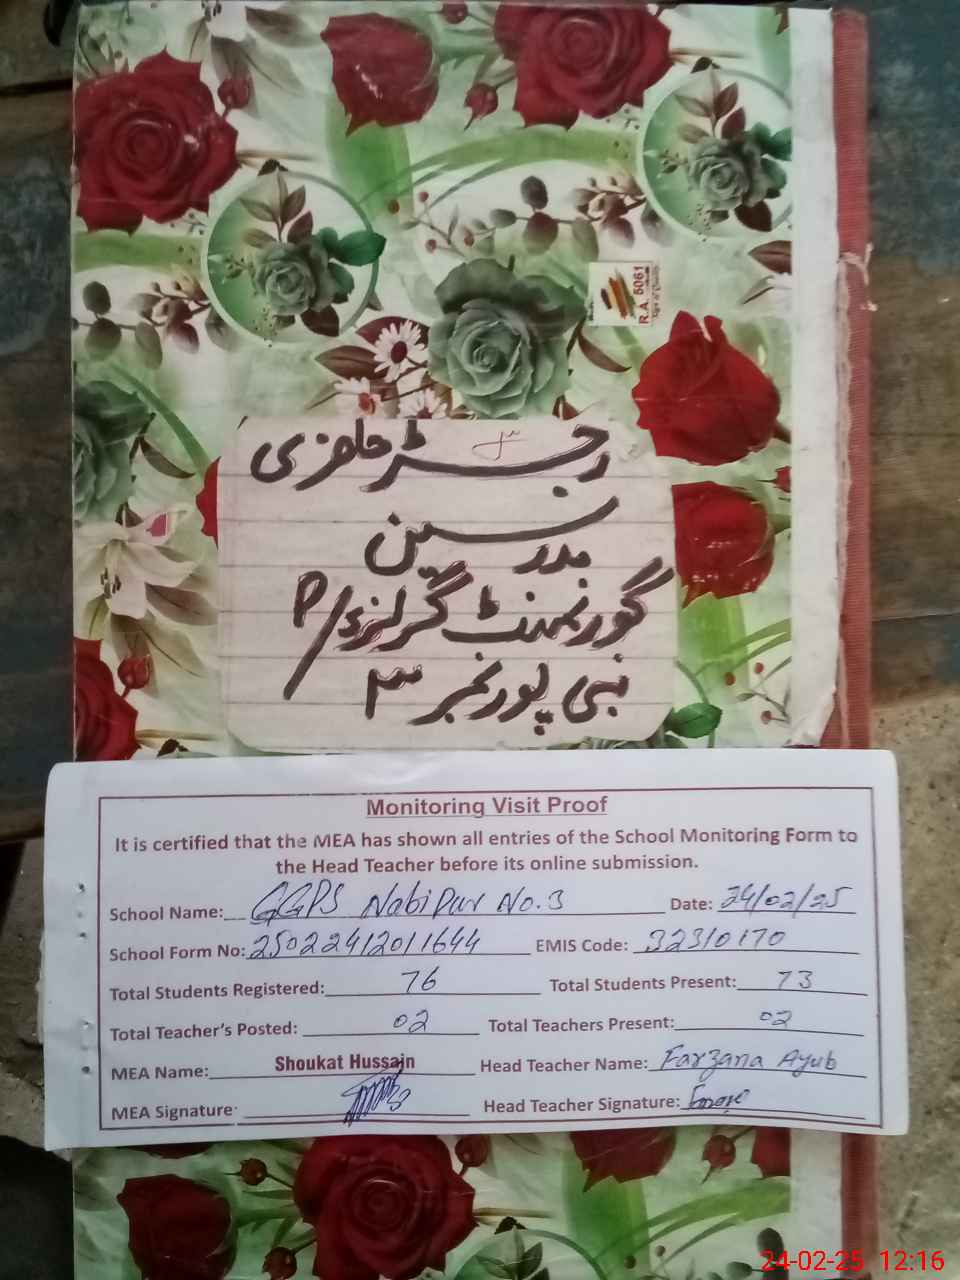 R.A. 5061
رجسٹر حاضری
مدرسین
گورنمنٹ گرلز P/S
نبی پور نمبر ۳
Monitoring Visit Proof
It is certified that the MEA has shown all entries of the School Monitoring Form to
the Head Teacher before its online submission.
School Name: GGPS Nabi Pur No.3 Date: 24/02/25
School Form No: 25022412011644 EMIS Code: 32310170
Total Students Registered: 76 Total Students Present: 73
Total Teacher's Posted: 02 Total Teachers Present: 02
MEA Name: Shoukat Hussain Head Teacher Name: Farzana Ayub
MEA Signature: Head Teacher Signature:
24-02-25 12:16